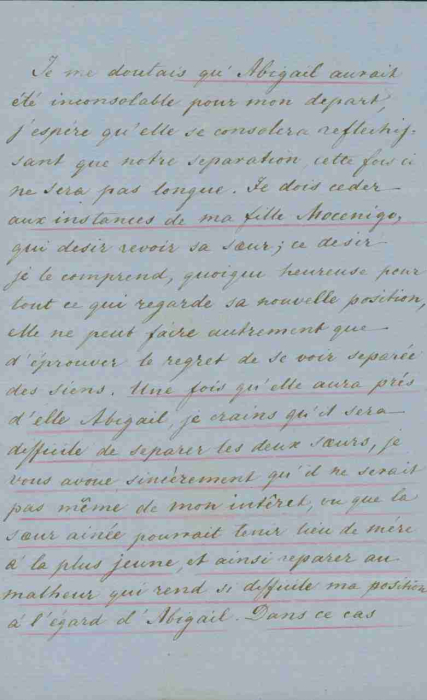 Je me doutais qu'Abigail aurait
été inconsolable pour mon depart,
j'espère qu'elle se consolera reflechis-
sant que notre separation cette fois ci
ne sera pas longue. Je dois ceder
aux instances de ma fille Mocenigo,
qui desir revoir sa sœur; ce desir
je le comprend, quoique heureuse pour
tout ce qui regarde sa nouvelle position,
elle ne peut faire autrement que
d'éprouver le regret de se voir separée
des siens. Une fois qu'elle aura près
d'elle Abigail, je crains qu'il sera
difficile de separer les deux sœurs, je
vous avoue sincèrement qu'il ne serait
pas même de mon intêret, vu que la
sœur ainée pourrait tenir lieu de mère
à la plus jeune, et ainsi reparer au
malheur qui rend si difficile ma position
à l'égard d'Abigail. Dans ce cas